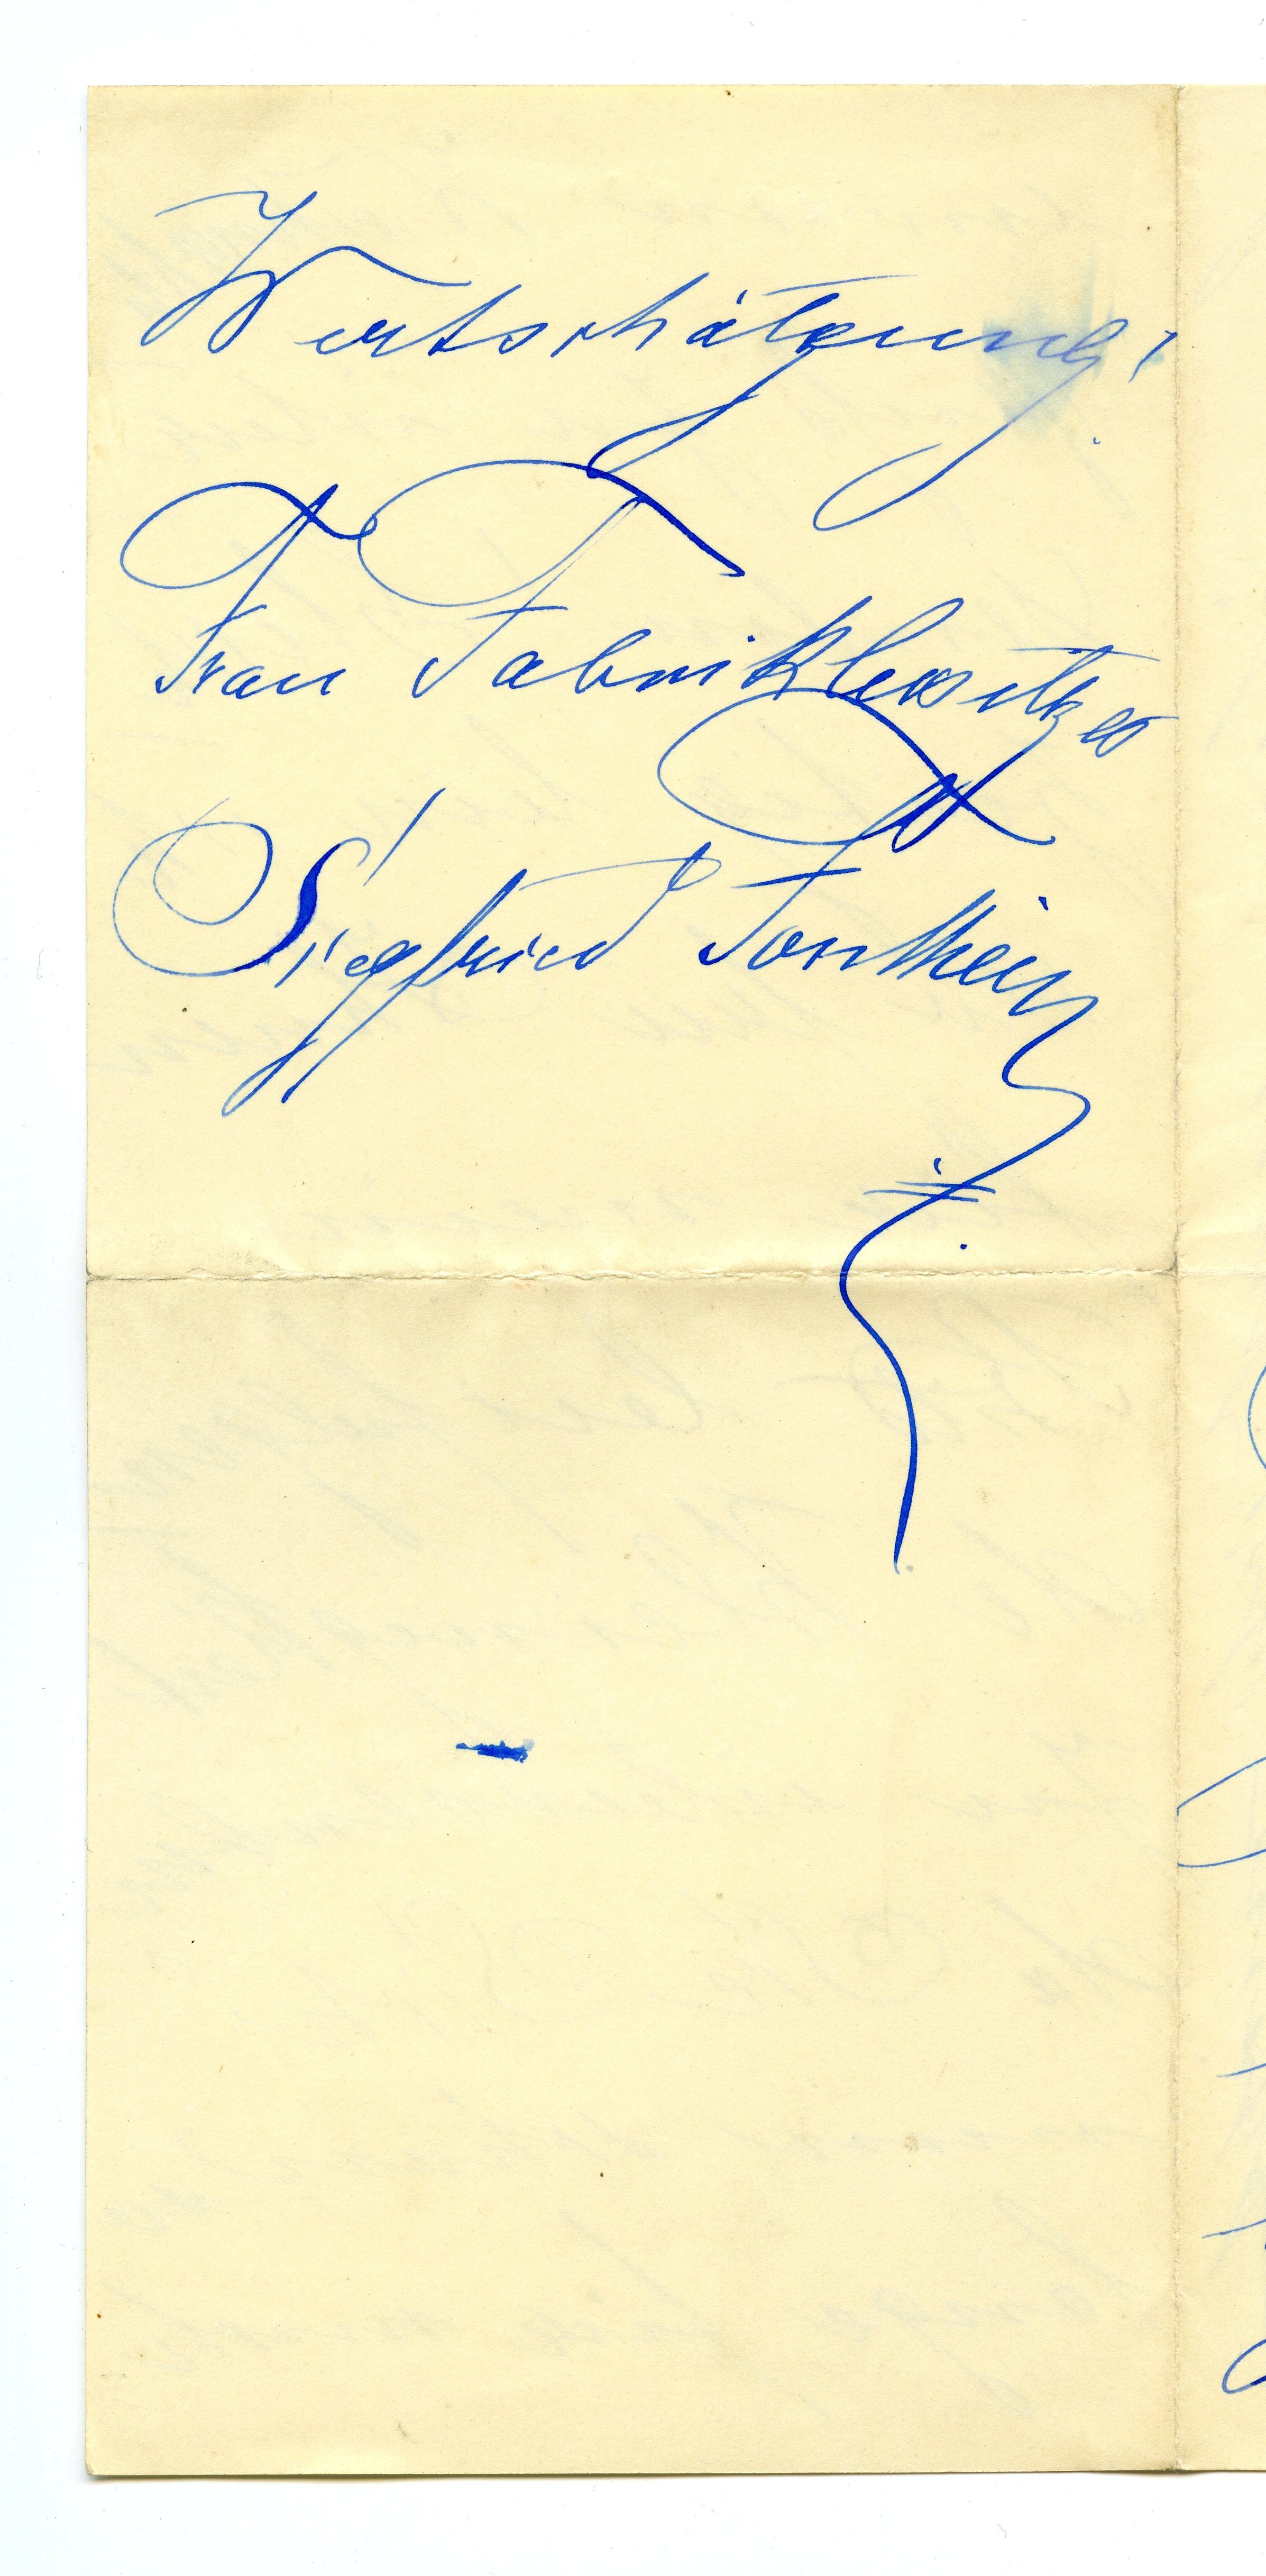 Wertschätzung!
Frau Fabrikbesitzer
Siegfried Fontheim